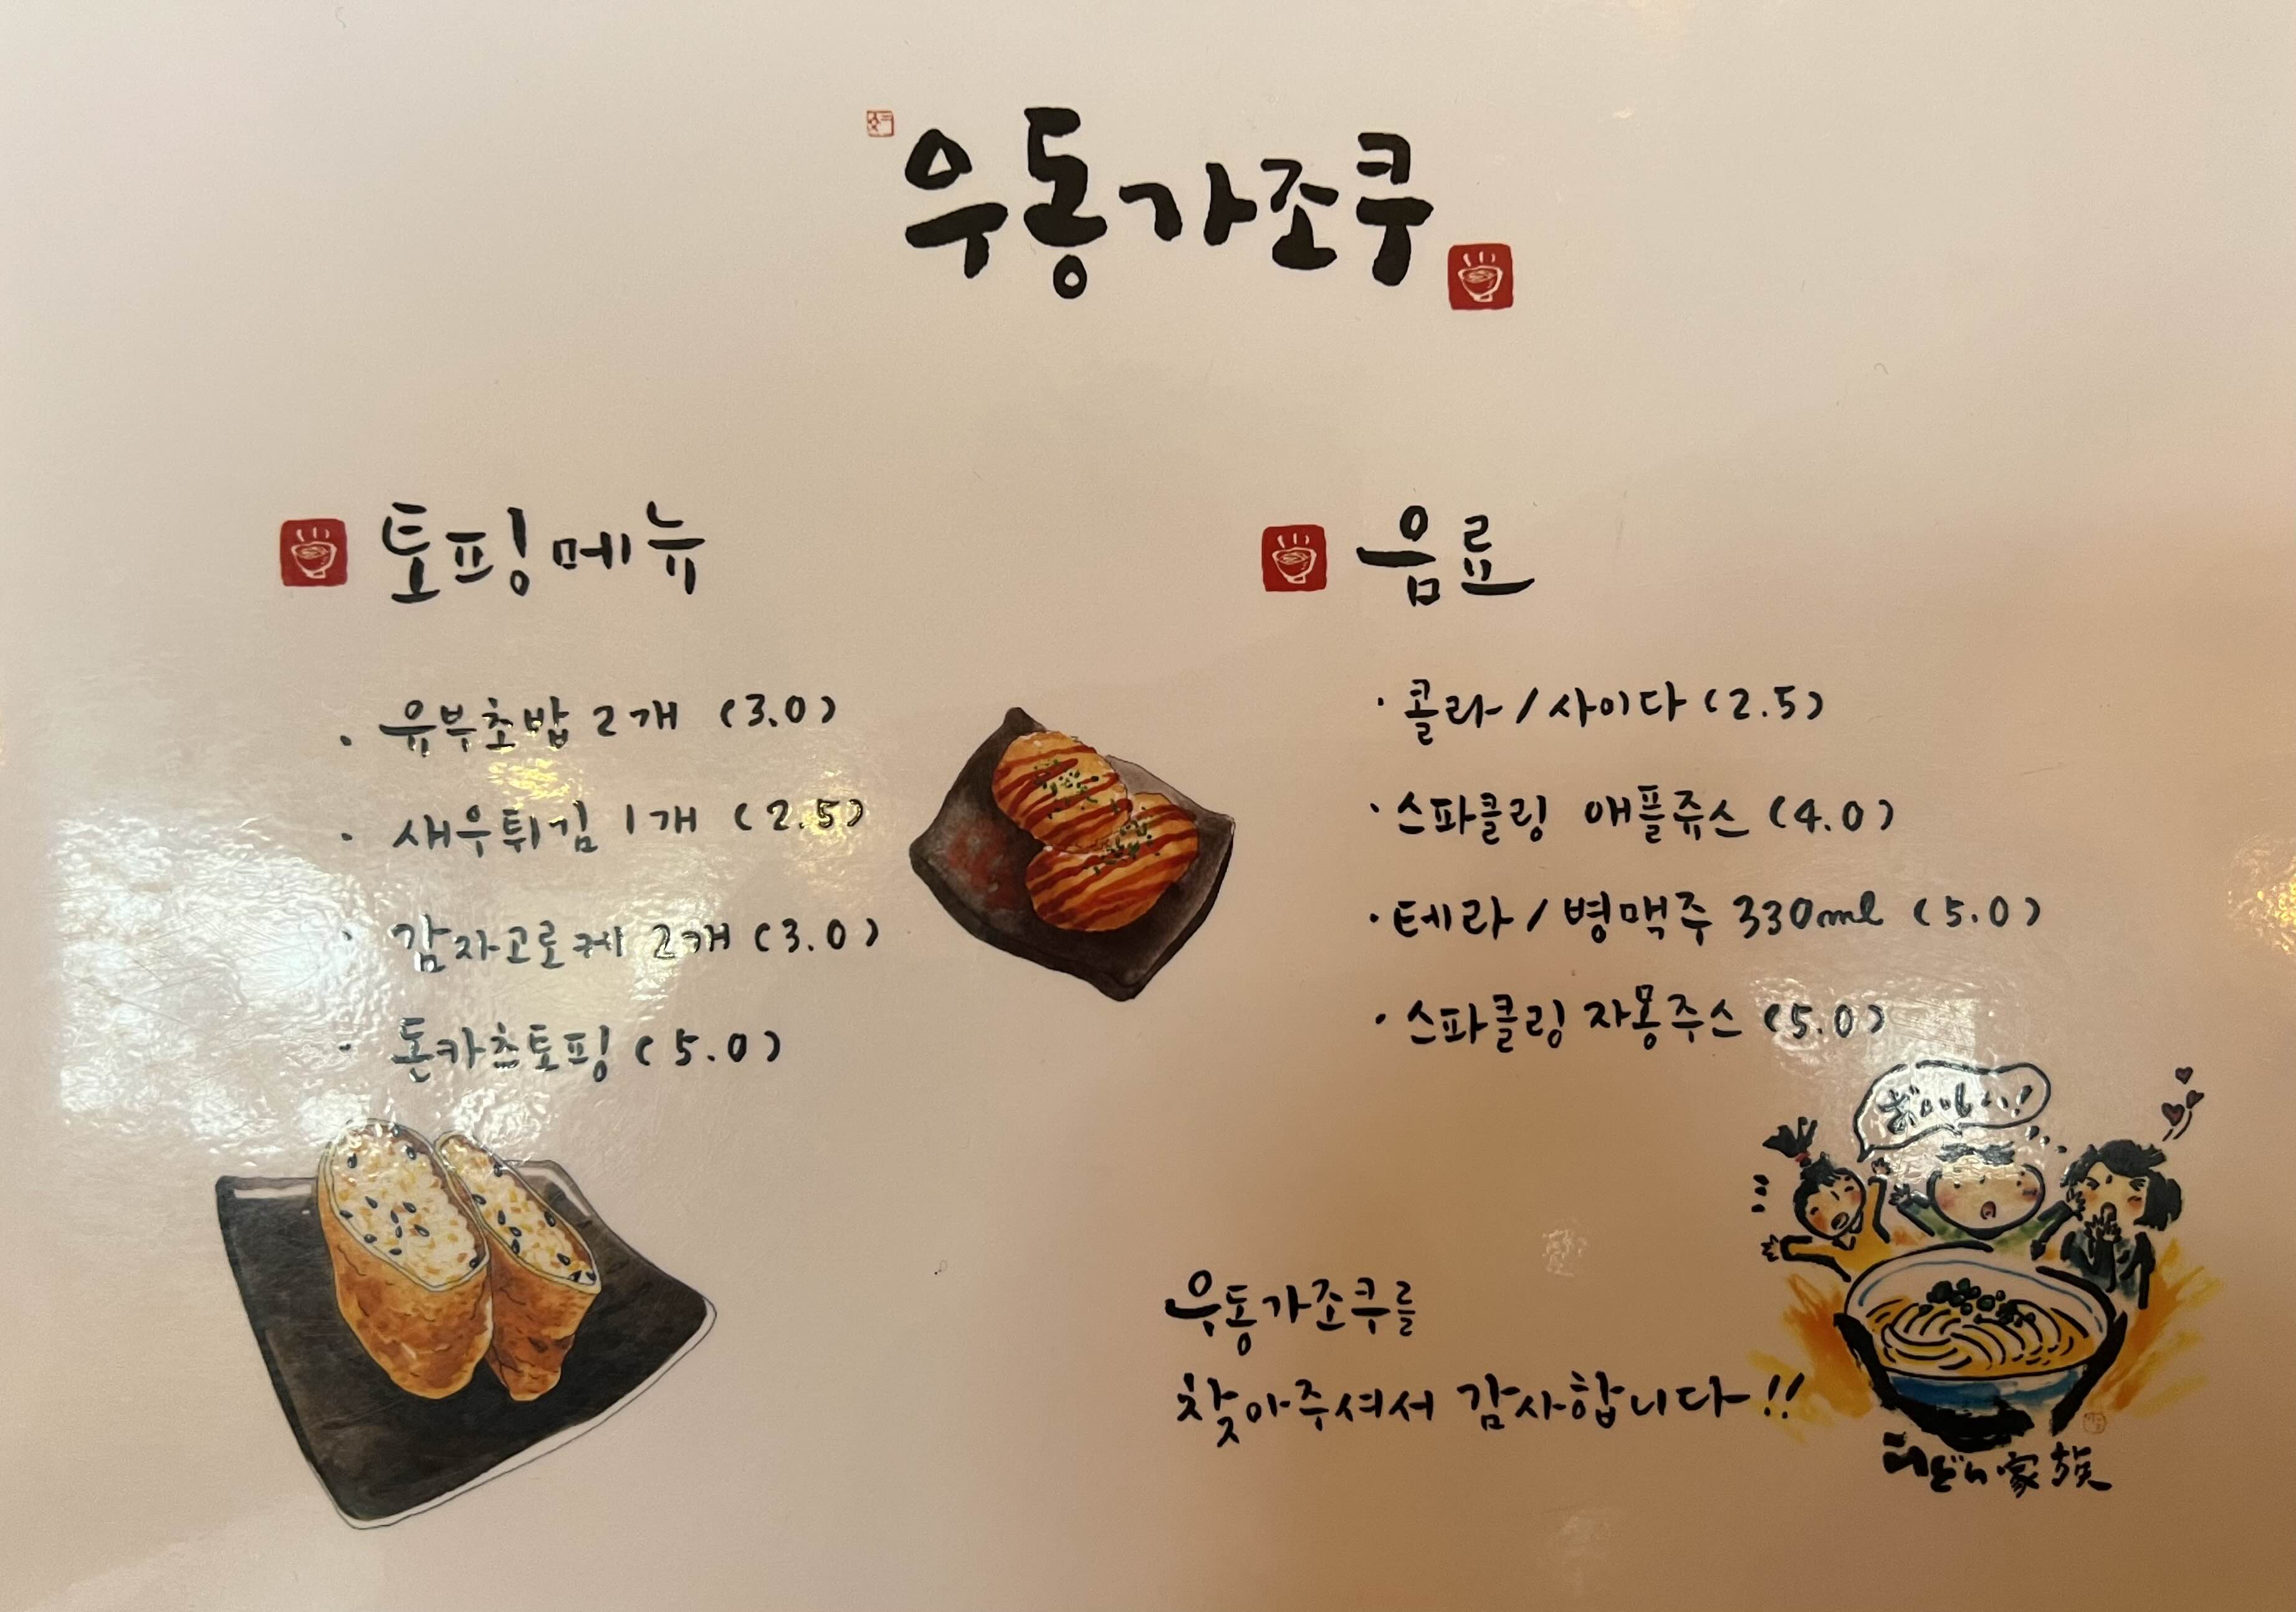 우동가조쿠
토핑메뉴
· 유부초밥 2개 (3.0)
· 새우튀김 1개 (2.5)
· 감자고로케 2개 (3.0)
· 돈카츠토핑 (5.0)
음료
· 콜라/사이다 (2.5)
· 스파클링 애플쥬스 (4.0)
· 테라/병맥주 330ml (5.0)
· 스파클링 자몽주스 (5.0)
우동가조쿠를
찾아주셔서 감사합니다!!
うどん家族